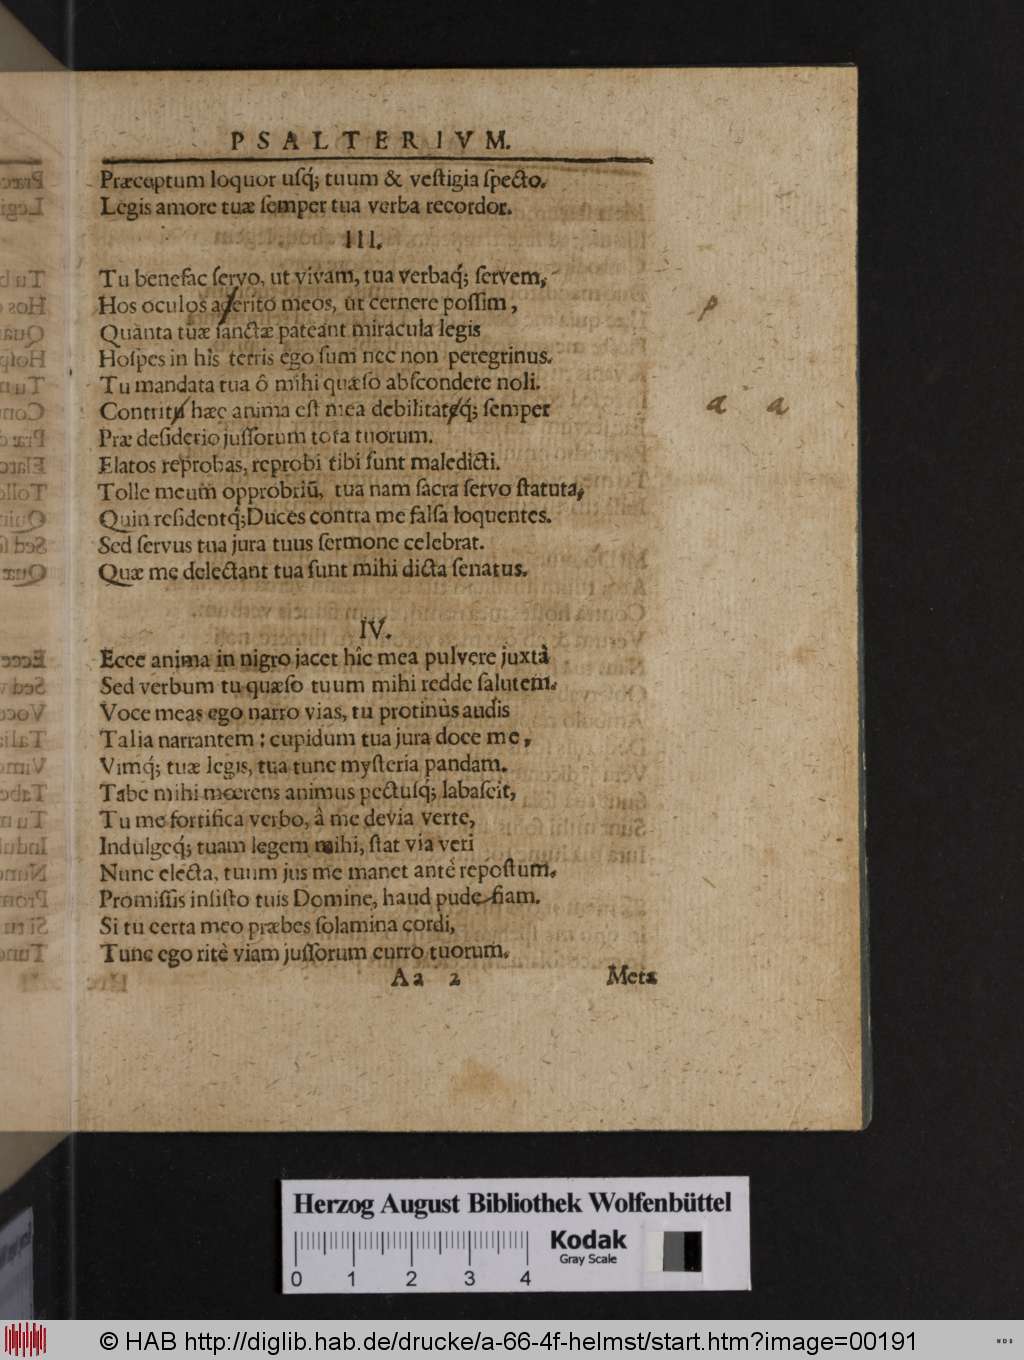 PSALTERIVM.
Præceptum loquor uſq́; tuum & veſtigia ſpecto.
Legis amore tuæ ſemper tua verba recordor.
III.
Tu benefac ſervo, ut vivam, tua verbaq́; ſervem,
Hos oculos aperito meos, ut cernere poſſim,
Quànta tuæ ſanctæ pateant miràcula legis
Hoſpes in his terris ego ſum nec non peregrinus.
Tu mandata tua ô mihi quæſo abſcondere noli.
Contrita hæc anima eſt mea debilitataq́; ſemper
Præ deſiderio juſſorum tota tuorum.
Elatos reprobas, reprobi tibi ſunt maledicti.
Tolle meum opprobriũ, tua nam ſacra ſervo ſtatuta,
Quin reſidentq́; Duces contra me falſa loquentes.
Sed ſervus tua jura tuus ſermone celebrat.
Quæ me delectant tua ſunt mihi dicta ſenatus.
IV.
Ecce anima in nigro jacet hîc mea pulvere juxtà
Sed verbum tu quæſo tuum mihi redde ſalutem.
Voce meas ego narro vias, tu protinùs audis
Talia narrantem: cupidum tua jura doce me,
Vimq́; tuæ legis, tua tunc myſteria pandam.
Tabe mihi mœrens animus pectuſq́; labaſcit,
Tu me fortifica verbo, â me devia verte,
Indulgeq́; tuam legem mihi, ſtat via veri
Nunc electa, tuum jus me manet antè repoſtum.
Promiſſis inſiſto tuis Domine, haud pudefiam.
Si tu certa meo præbes ſolamina cordi,
Tunc ego ritè viam juſſorum curro tuorum.
Aa 2 Meta
p
a a
Herzog August Bibliothek Wolfenbüttel
Kodak
Gray Scale
0 1 2 3 4
© HAB http://diglib.hab.de/drucke/a-66-4f-helmst/start.htm?image=00191